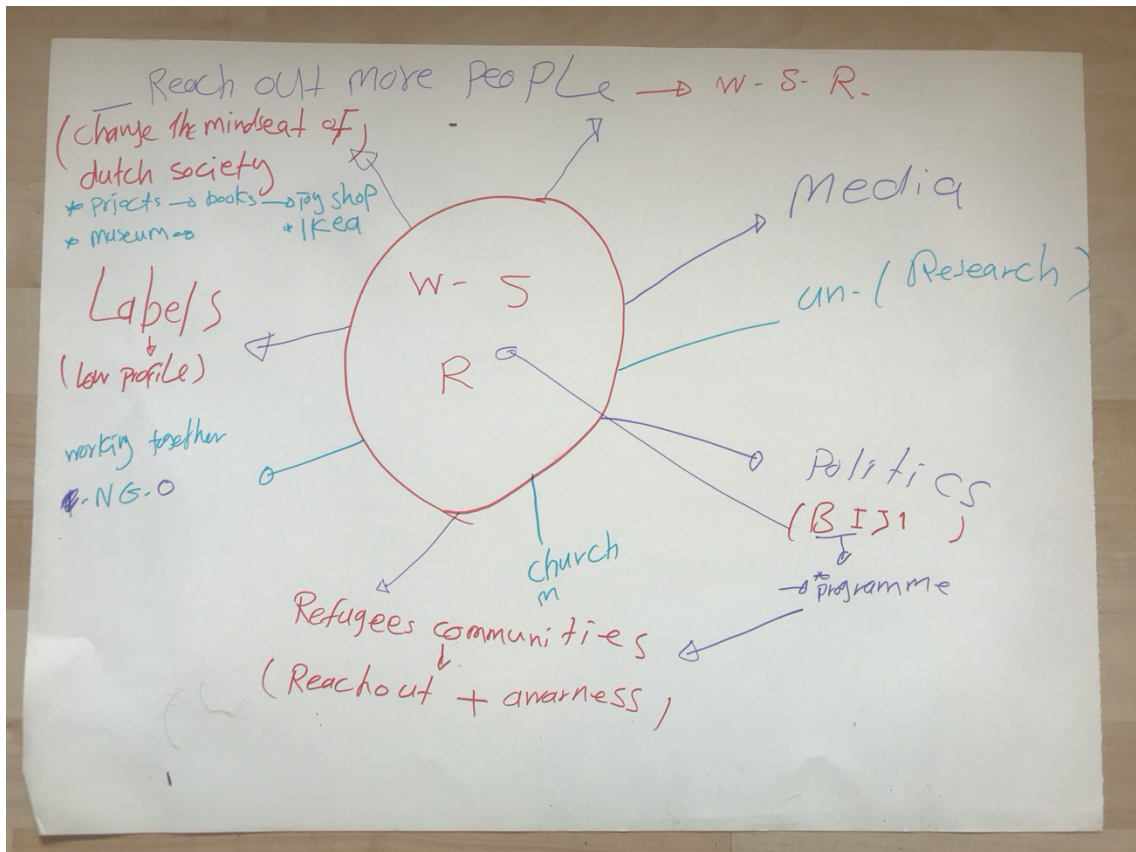 _ Reach out more PeoPLe → W - S - R.
(change the mindseat of)
dutch society
* Prjects → books → toy shop
* museum →
* IKea
Labels
(Low profiLe)
working together
- NG-O
W - S
R
Media
un- (Research)
PoLitics
(BIJ1)
→ * programme
church
m
Refugees communities
(Reachout + awarness)